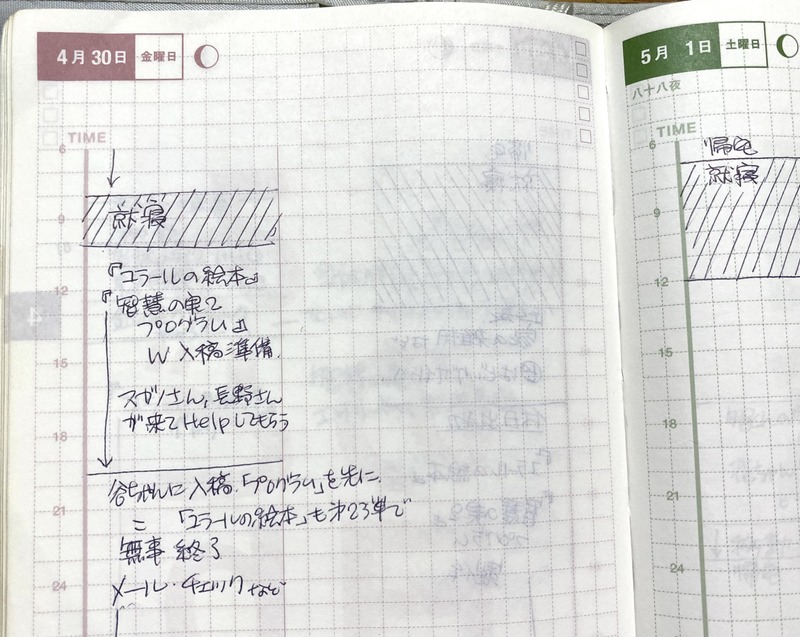 4月30日 金曜日
TIME
6
就寝
9
『コラールの絵本』
12
『智慧の果て
プログラム』
W 入稿準備.
15
スガノさん, 長野さん
が来てHelpしてもらう
18
谷ちゃんに入稿.「プログラム」を先に.
21
「コラールの絵本」も 第23弾で
無事 終了
24
メール・チェックなど
4
5月 1日 土曜日
八十八夜
TIME
6
帰宅
就寝
9
12
15
18
21
24